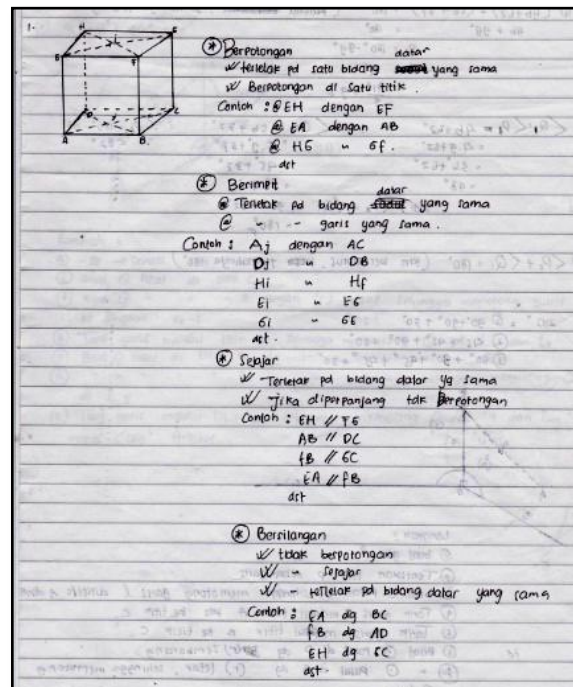 1.
H G
E F
i
D C
j
A B
* Berpotongan
datar
W terletak pd satu bidang yang sama
W Berpotongan di satu titik.
Contoh : @ EH dengan EF
@ EA dengan AB
@ HG " Gf.
dst
* Berimpit
datar
@ Terletak pd bidang yang sama
@ " - garis yang sama.
Contoh : Aj dengan AC
Dj " DB
Hi " Hf
Ei " EG
Gi " GE
dst.
* Sejajar
W Terletak pd bidang datar yg sama
W jika diperpanjang tdk Berpotongan
Contoh : EH // FG
AB // DC
fB // GC
EA // fB
dst
* Bersilangan
W tdak berpotongan
W " sejajar
W " terletak pd bidang datar yang sama
Contoh : EA dg BC
fB dg AD
EH dg GC
dst.